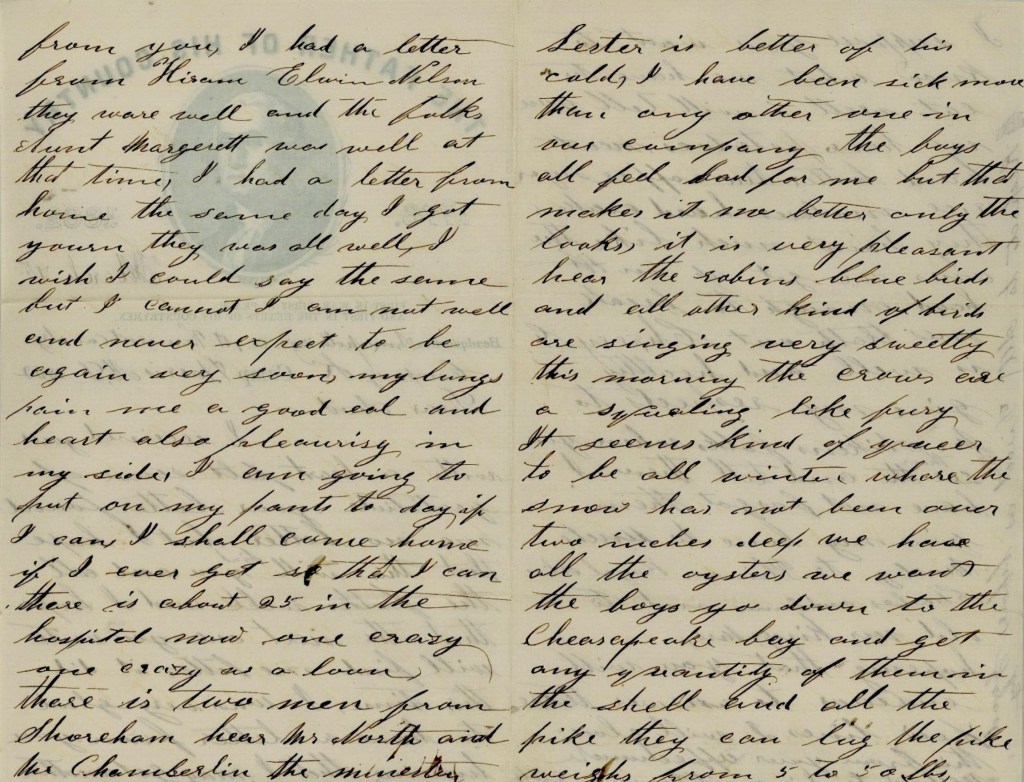 from you, I had a letter
from Hiram Elwin Nelson
they ware well and the folks
Aunt Margerett was well at
that time, I had a letter from
home the same day I got
yourn they was all well, I
wish I could say the same
but I cannot I am not well
and never expect to be
again very soon, my lungs
pain me a good eal and
heart also pleaurisy in
my side, I am going to
put on my pants to day if
I can, I shall come home
if I ever get so that I can
thare is about 25 in the
hospital now one crazy
one crazy as a loon,
thare is two men from
Shoreham hear Mr North and
Mr Chamberlin the minester
Lester is better of his
cold, I have been sick more
than any other one in
our company the boys
all feel bad for me but that
makes it no better only the
looks, it is very pleasant
hear the robins blue birds
and all other kind of birds
are singing very sweetly
this morning the crows are
a squaling like fury
It seems kind of queer
to be all winter whare the
snow has not been over
two inches deep we have
all the oysters we want
the boys go down to the
Cheasapeake bay and get
any quantity of them in
the shell and all the
pike they can lug the pike
weighs from 5 to
FATHER OF HIS COUNTRY